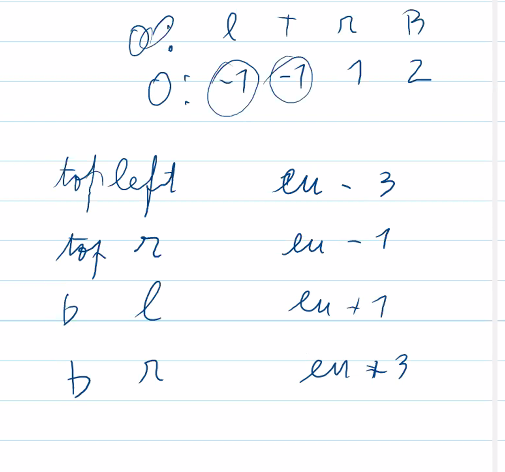 l T r B
0: -1 -1 1 2
top left en - 3
top r en - 1
b l en + 1
b r en + 3